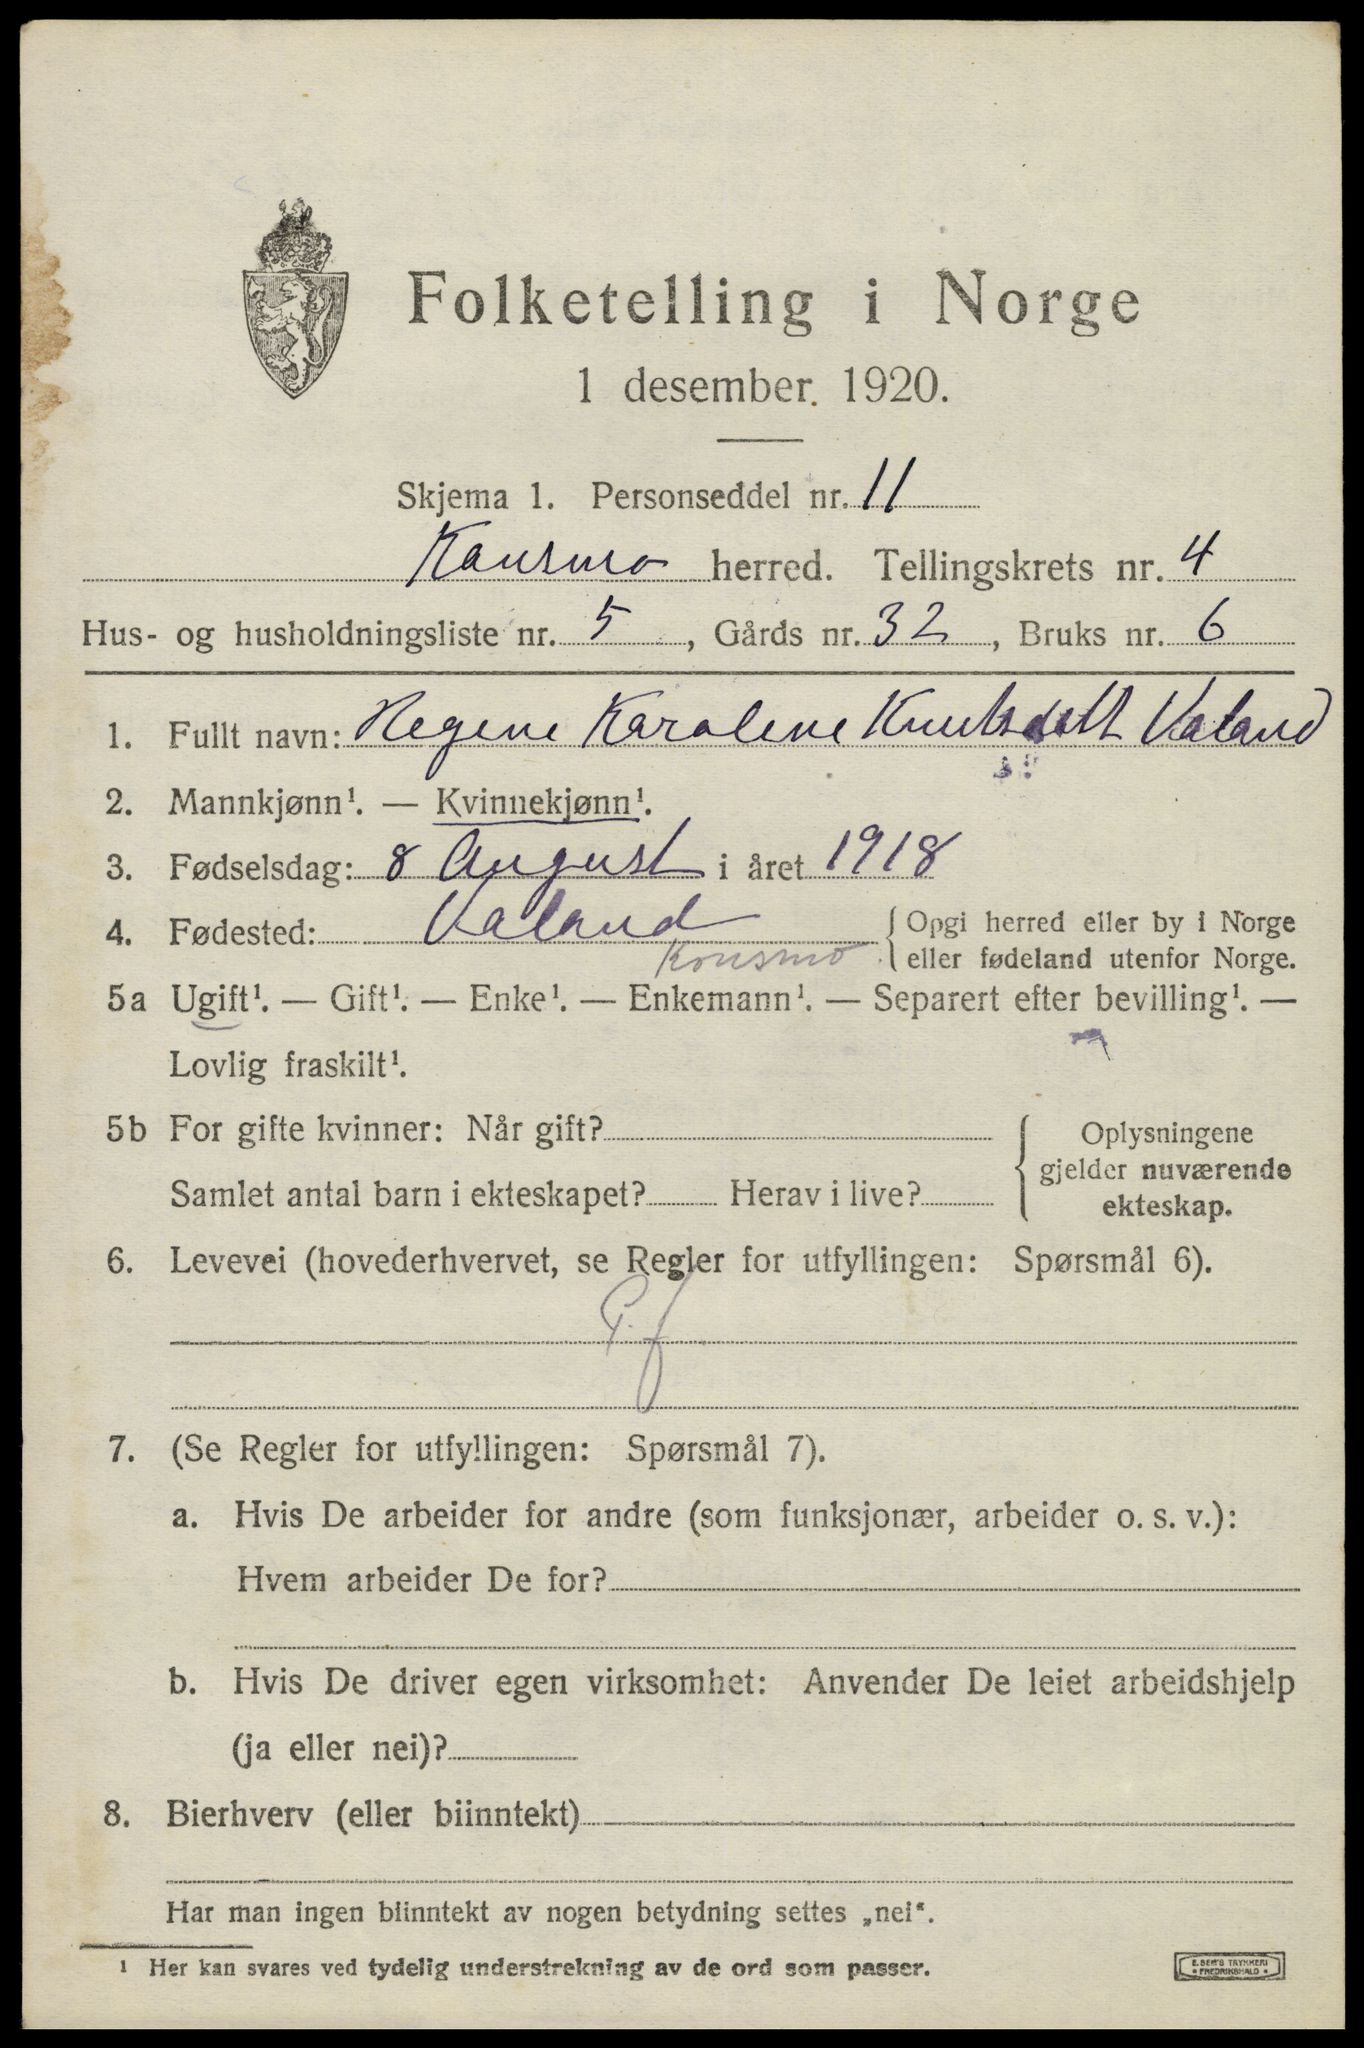 Folketelling i Norge
1 desember 1920.
Skjema 1. Personseddel nr. 11
Konsmo herred. Tellingskrets nr. 4
Hus- og husholdningsliste nr. 5, Gårds nr. 32, Bruks nr. 6
1. Fullt navn: Regine Karoline Knutsdatt Valand
2. Mannkjønn¹. — Kvinnekjønn¹.
3. Fødselsdag: 8 August i året 1918
4. Fødested: Valand { Opgi herred eller by i Norge
Konsmo eller fødeland utenfor Norge.
5a Ugift¹. — Gift¹. — Enke¹. — Enkemann¹. — Separert efter bevilling¹. —
Lovlig fraskilt¹.
5b For gifte kvinner: Når gift? { Oplysningene
gjelder nuværende
Samlet antal barn i ekteskapet? Herav i live?
ekteskap.
6. Levevei (hovederhvervet, se Regler for utfyllingen: Spørsmål 6).
7. (Se Regler for utfyllingen: Spørsmål 7).
a. Hvis De arbeider for andre (som funksjonær, arbeider o. s. v.):
Hvem arbeider De for?
b. Hvis De driver egen virksomhet: Anvender De leiet arbeidshjelp
(ja eller nei)?
8. Bierhverv (eller biinntekt)
Har man ingen biinntekt av nogen betydning settes „nei“.
¹ Her kan svares ved tydelig understrekning av de ord som passer.
E. SEM'S TRYKKERI
• FREDRIKSHALD •